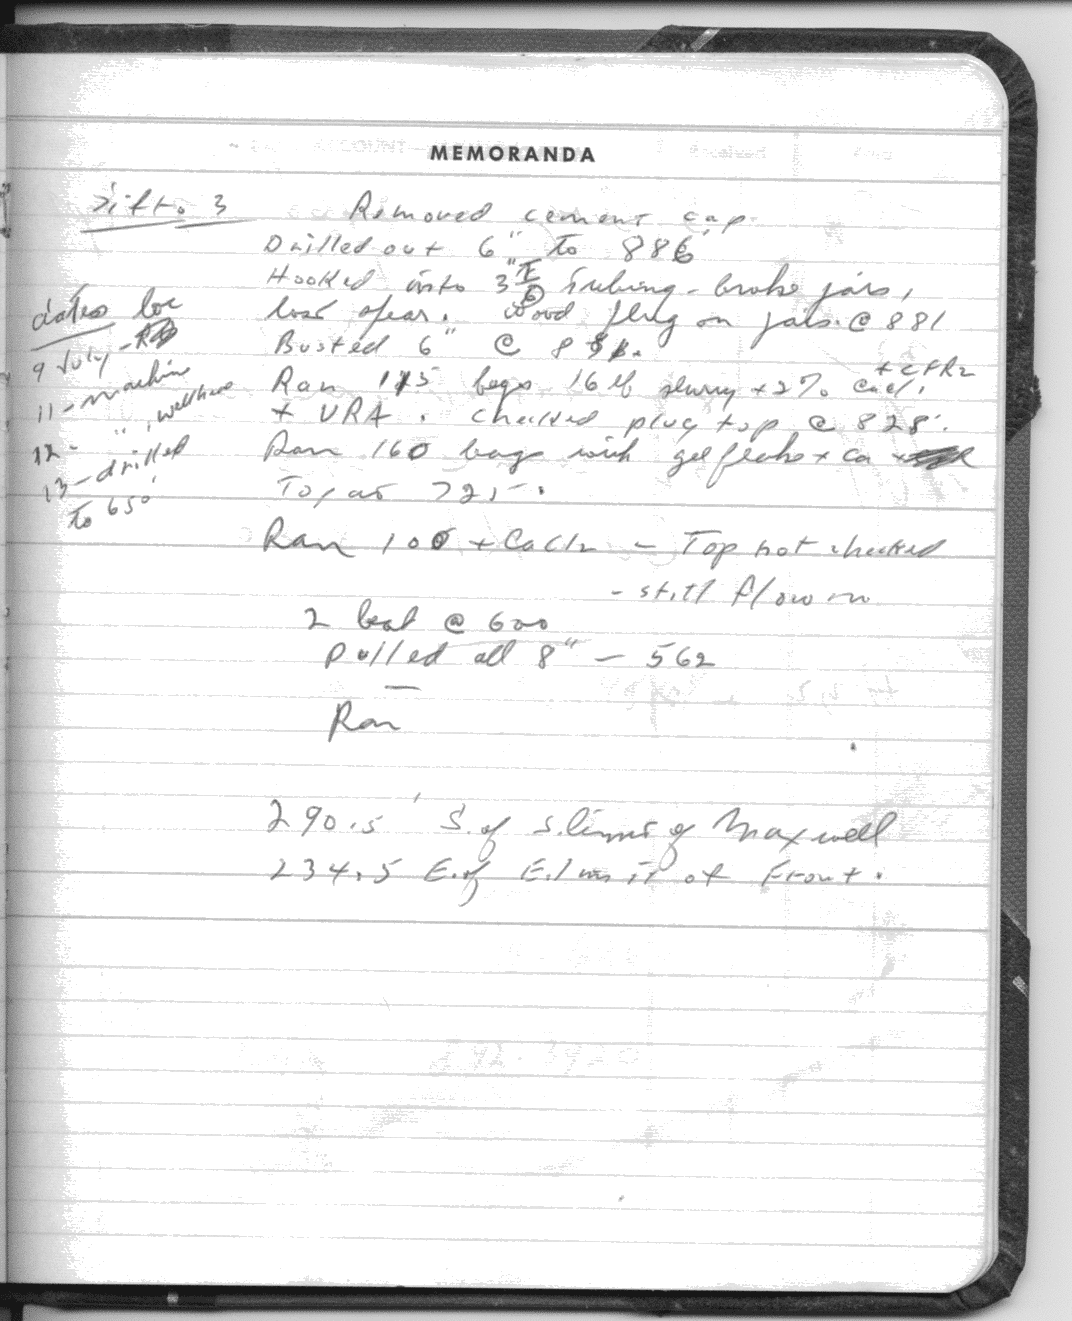 MEMORANDA
Sifto 3
Removed cement cap.
Drilled out 6" to 886'
Hooked into 3" Tubing - broke jars,
lost spear. Wood plug on jars @ 881
Busted 6" @
Ran 115 bags 16 lb slurry + 2% CaCl2 + CFR2
+ URA. Checked plug top @ 828'.
Ran 160 bags with gel flake + Ca +
Top at 721'.
Ran 100 + CaCl2 - Top not checked
- still flowin
2 @ 600
Pulled all 8" - 562
Ran
dates loc
9 July -
11 - machine
12 - " , wellhead
13 - drilled
to 650'
290.5' S. of S. limit of Maxwell
234.5 E. of E. limit of Front.